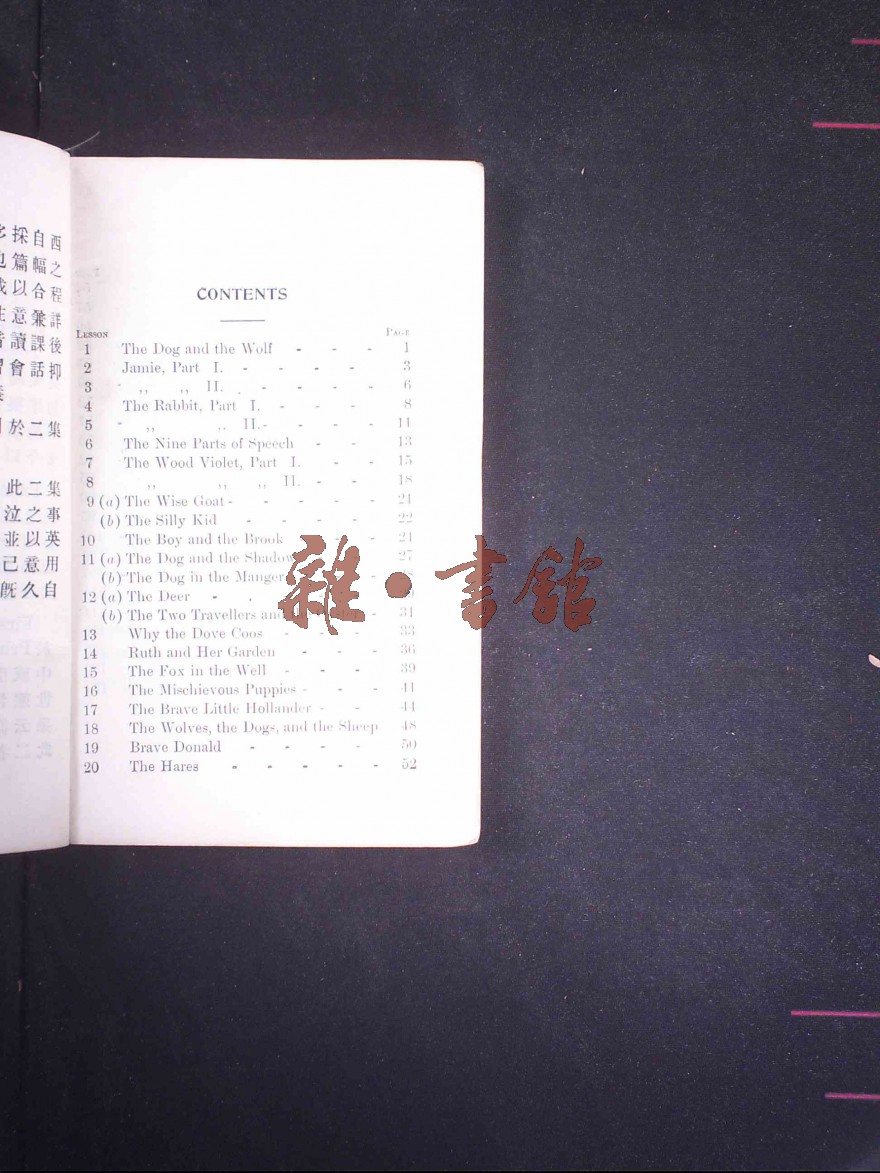 CONTENTS
LESSON PAGE
1 The Dog and the Wolf - - - 1
2 Jamie, Part I. - - - - 3
3 " ,, ,, II. - - - - 6
4 The Rabbit, Part I. - - - 8
5 " ,, ,, II. - - - - 11
6 The Nine Parts of Speech - - 13
7 The Wood Violet, Part I. - - - 15
8 ,, ,, ,, II. - - - 18
9 (a) The Wise Goat - - - - - 21
(b) The Silly Kid - - - - 22
10 The Boy and the Brook - - - 24
11 (a) The Dog and the Shadow - - 27
(b) The Dog in the Manger
12 (a) The Deer
(b) The Two Travellers and - 31
13 Why the Dove Coos - - - 33
14 Ruth and Her Garden - - - 36
15 The Fox in the Well - - - 39
16 The Mischievous Puppies - - - 41
17 The Brave Little Hollander - - - 44
18 The Wolves, the Dogs, and the Sheep 48
19 Brave Donald - - - - - 50
20 The Hares - - - - - 52
西自採
之幅篇
程合以
詳兼意
後課讀
抑話會
集二於
集二此
事之泣
英以並
用意己
自久既
雜·書館